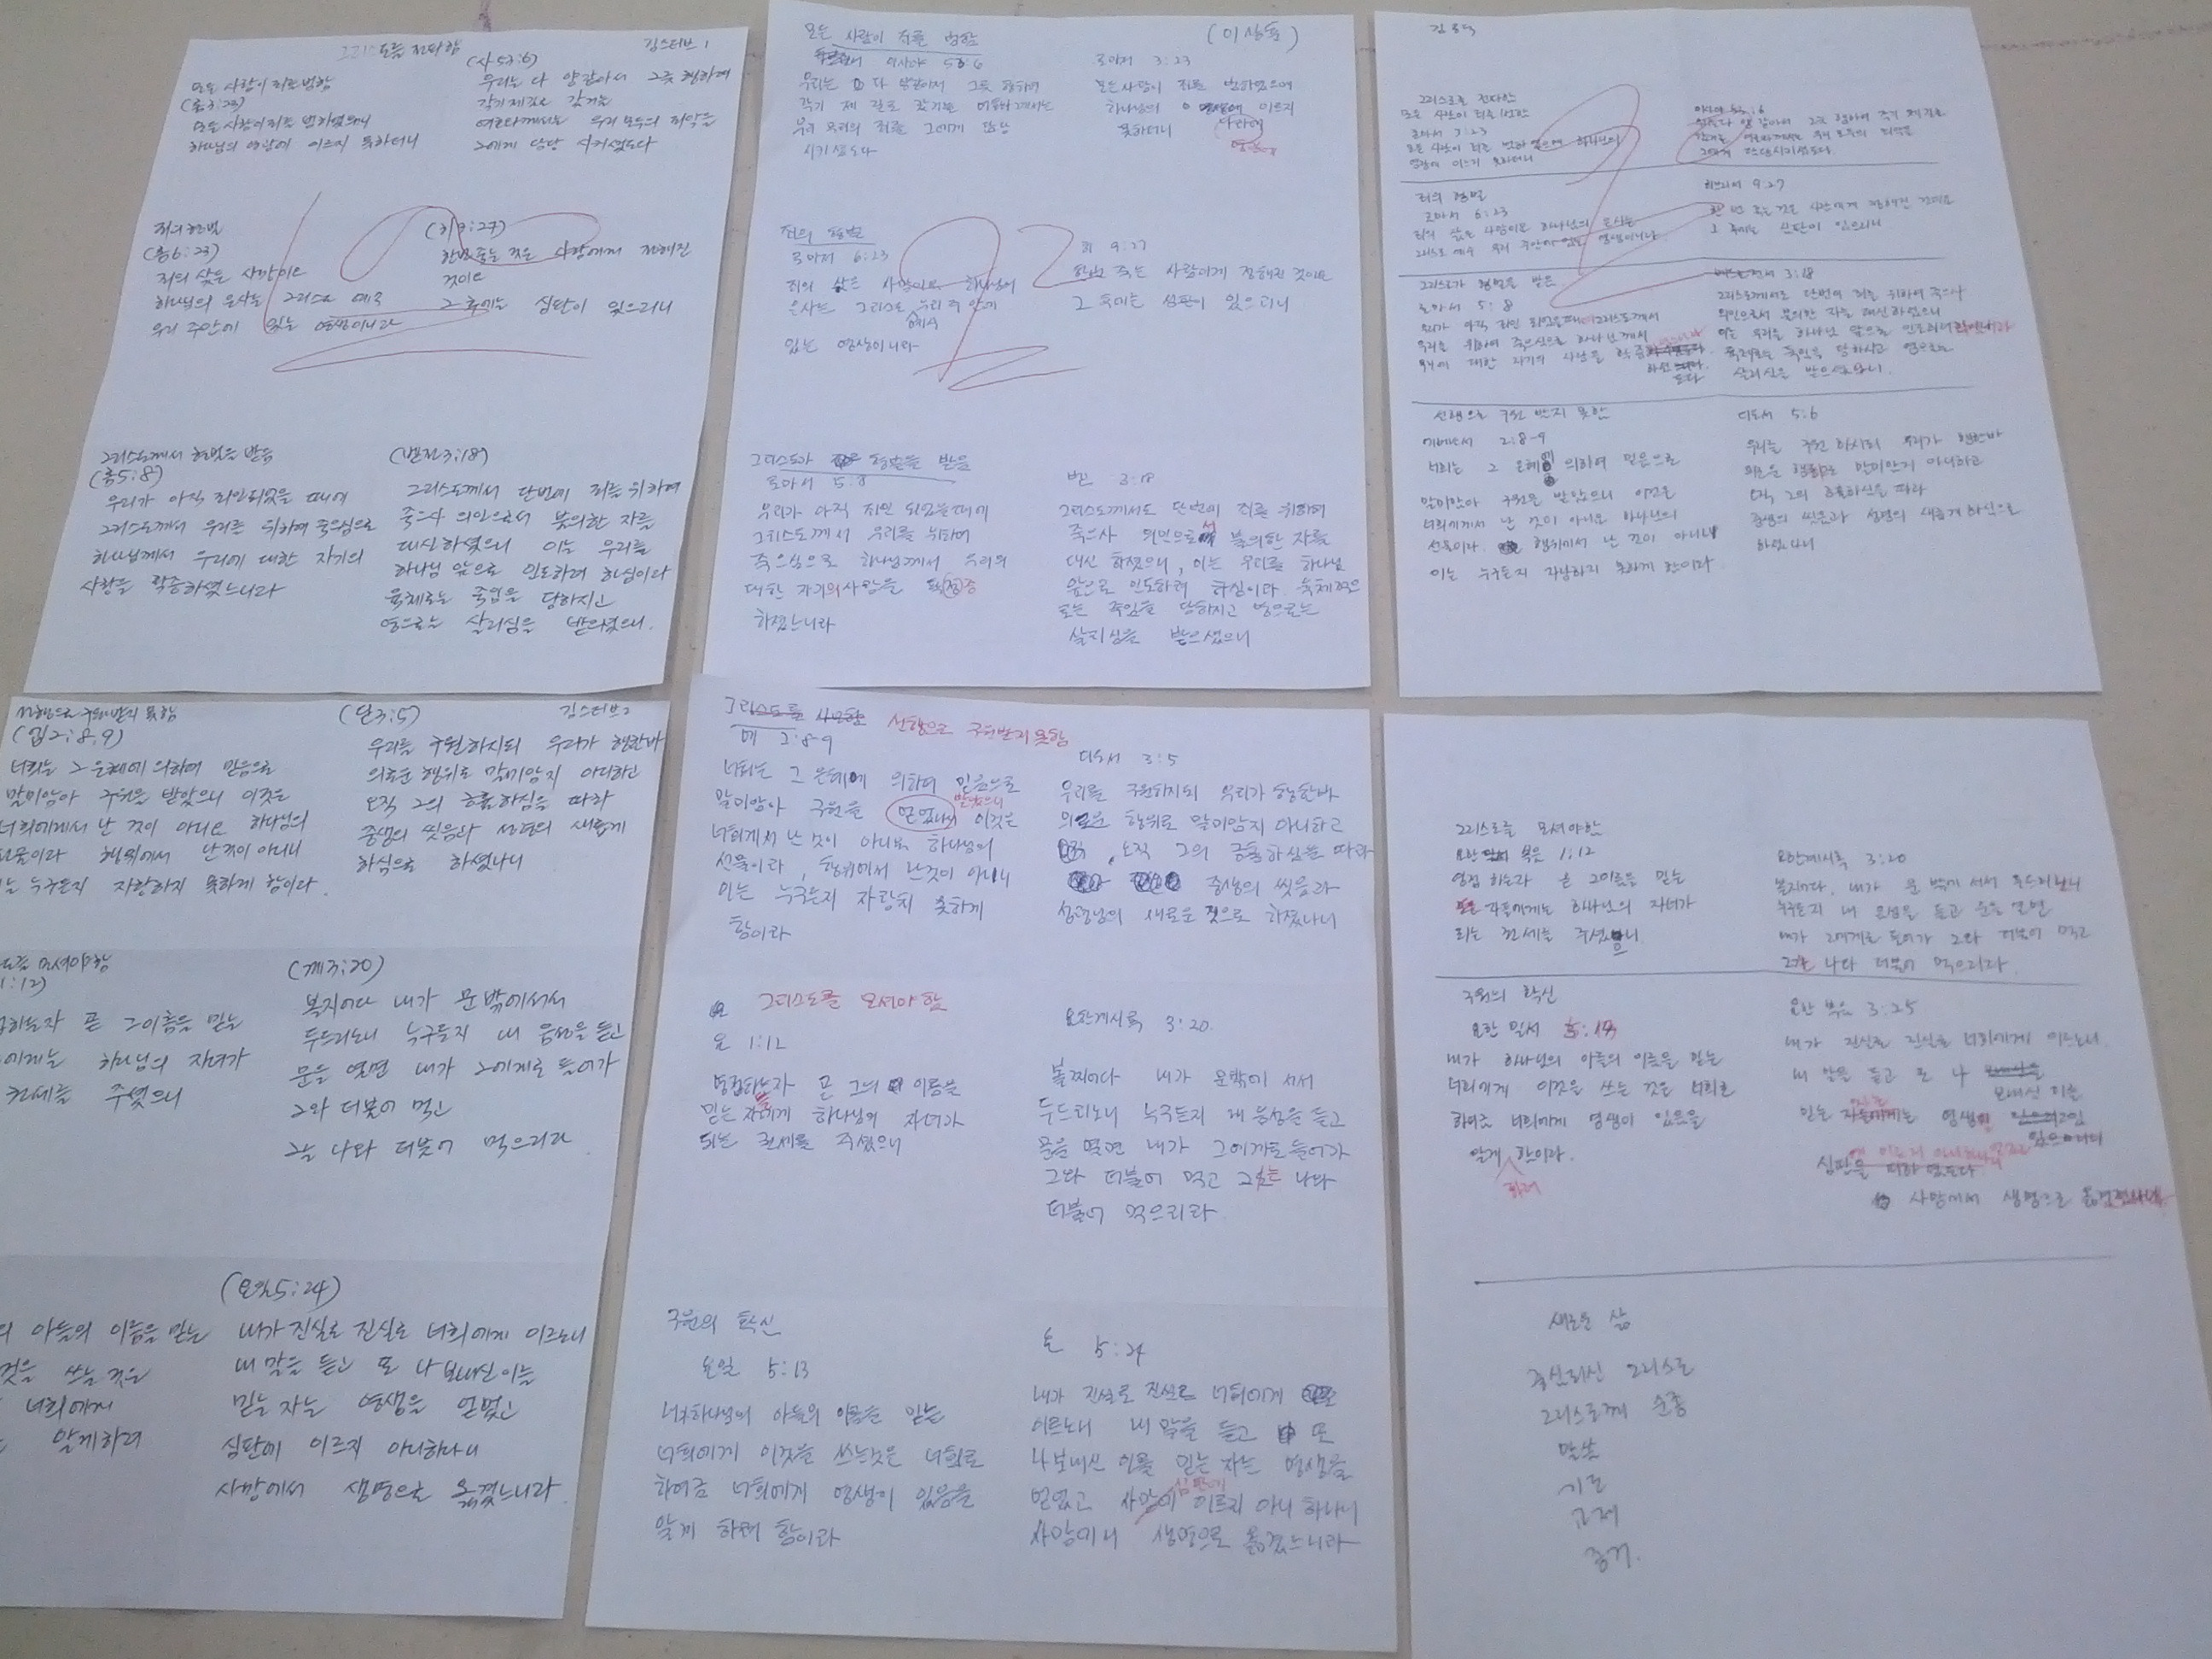 그리스도를 전파함
김스터브 1
모든 사람이 죄를 범함
(롬3:23)
모든 사람이 죄를 범하였으매
하나님의 영광에 이르지 못하더니
(사53:6)
우리는 다 양같아서 그릇 행하여
각기 제 길로 갔거늘
여호와께서는 우리 모두의 죄악을
그에게 담당 시키셨도다
죄의 형벌
(롬6:23)
죄의 삯은 사망이요
하나님의 은사는 그리스도 예수
우리 주안에 있는 영생이니라
(히9:27)
한번 죽는 것은 사람에게 정해진
것이요
그 후에는 심판이 있으리니
그리스도께서 형벌을 받음
(롬5:8)
우리가 아직 죄인되었을 때에
그리스도께서 우리를 위하여 죽으심으로
하나님께서 우리에 대한 자기의
사랑을 확증하셨느니라
(벧전3:18)
그리스도께서 단번에 죄를 위하여
죽으사 의인으로서 불의한 자를
대신하셨으니 이는 우리를
하나님 앞으로 인도하려 하심이라
육체로는 죽임을 당하시고
영으로는 살리심을 받으셨으니.
모든 사람이 죄를 범함
(이상훈)
이사야 53:6
우리는 다 양같아서 그릇 행하여
각기 제 길로 갔거늘 여호와께서는
우리 모두의 죄를 그에게 담당
시키셨도다
로마서 3:23
모든사람이 죄를 범하였으매
하나님의 영광에 이르지
못하더니
죄의 형벌
로마서 6:23
죄의 삯은 사망이요 하나님의
은사는 그리스도 예수 우리 주 안에
있는 영생이니라
히 9:27
한번 죽는 사람에게 정해진 것이요
그 후에는 심판이 있으리니
그리스도가 형벌을 받음
로마서 5:8
우리가 아직 죄인 되었을때에
그리스도께서 우리를 위하여
죽으심으로 하나님께서 우리의
대한 자기의사랑을 확증
하셨느니라
벧전 3:18
그리스도께서도 단번에 죄를 위하여
죽으사 의인으로서 불의한 자를
대신 하셨으니, 이는 우리를 하나님
앞으로 인도하려 하심이라 육체
로는 죽임을 당하시고 영으로는
살리심을 받으셨으니
그리스도를 전파함
모든 사람이 죄를 범함
로마서 3:23
모든 사람이 죄를 범하였으매 하나님의
영광에 이르지 못하더니
이사야 53:6
죄의 형벌
로마서 6:23
죄의 삯은 사망이요 하나님의 은사는
그리스도 예수 우리 주안에 있는 영생이니라
히브리서 9:27
한 번 죽는 것은 사람에게 정해진 것이요
그 후에는 심판이 있으리니
그리스도가 형벌을 받음
로마서 5:8
우리가 아직 죄인 되었을때에 그리스도께서
우리를 위하여 죽으심으로 하나님께서
우리에 대한 자기의 사랑을 확증
3:18
그리스도께서도 단번에 죄를 위하여 죽으사
의인으로서 불의한 자를 대신 하셨으니
이는 우리를 하나님 앞으로 인도하려
육체로는 죽임을 당하시고 영으로는
살리심을 받으셨으니.
선행으로 구원 받지 못함
에베소서 2:8-9
너희는 그 은혜에 의하여 믿음으로
말미암아 구원을 받았으니 이것은
너희에게서 난 것이 아니요 하나님의
선물이라. 행위에서 난 것이 아니니
이는 누구든지 자랑하지 못하게 함이라
디도서 5:6
우리를 구원 하시되 우리가 행한바
의로운 행위로 말미암지 아니하고
오직 그의 긍휼하심을 따라
중생의 씻음과 성령의 새롭게 하심으로
하셨나니
선행으로 구원받지 못함
김스터브2
(엡2:8,9)
너희는 그 은혜에 의하여 믿음으로
말미암아 구원을 받았으니 이것은
너희에게서 난 것이 아니요 하나님의
선물이라 행위에서 난것이 아니니
이는 누구든지 자랑하지 못하게 함이라.
(딛3:5)
우리를 구원하시되 우리가 행한바
의로운 행위로 말미암지 아니하고
오직 그의 긍휼하심을 따라
중생의 씻음과 성령의 새롭게
하심으로 하셨나니
모셔야함
1:12)
하는자 곧 그이름을 믿는
에게는 하나님의 자녀가
권세를 주셨으니
(계3:20)
볼지어다 내가 문 밖에서서
두드리노니 누구든지 내 음성을 듣고
문을 열면 내가 그에게로 들어가
그와 더불어 먹고
그는 나와 더불어 먹으리라
의 아들의 이름을 믿는
것을 쓰는 것은
너희에게
알게하려
(요한5:24)
내가 진실로 진실로 너희에게 이르노니
내 말을 듣고 또 나 보내신 이를
믿는 자는 영생을 얻었고
심판에 이르지 아니하나니
사망에서 생명으로 옮겼느니라.
그리스도를
선행으로 구원받지 못함
에 2:8-9
너희는 그 은혜에 의하여 믿음으로
말미암아 구원을 얻었나니 이것은
받았으니
너희에게서 난 것이 아니요 하나님의
선물이라, 행위에서 난것이 아니니
이는 누구든지 자랑치 못하게
함이라
디도서 3:5
우리를 구원하시되 우리가 행한바
의로운 행위로 말미암지 아니하고
오직 그의 긍휼하심을 따라
중생의 씻음과
성령님의 새로운 것으로 하셨나니
그리스도를 모셔야 함
요 1:12
영접하는자 곧 그의 이름을
믿는 자에게 하나님의 자녀가
되는 권세를 주셨으니
요한계시록 3:20.
볼찌어다 내가 문밖에 서서
두드리노니 누구든지 내 음성을 듣고
문을 열면 내가 그에게로 들어가
그와 더불어 먹고 그는 나와
더불어 먹으리라
구원의 확신
요일 5:13
하나님의 아들의 이름을 믿는
너희에게 이것을 쓰는것은 너희로
하여금 너희에게 영생이 있음을
알게 하려 함이라
요 5:24
내가 진실로 진실로 너희에게
이르노니 내 말을 듣고 또
나 보내신 이를 믿는 자는 영생을
심판에
얻었고 사망에 이르지 아니 하나니
사망에서 생명으로 옮겼느니라
그리스도를 모셔야함
요한 복음 1:12
영접 하는자 곧 그이름을 믿는
자들에게는 하나님의 자녀가
되는 권세를 주셨으니
요한계시록 3:20
볼지어다. 내가 문 밖에 서서 두드리노니
누구든지 내 음성을 듣고 문을 열면
내가 그에게로 들어가 그와 더불어 먹고
그는 나와 더불어 먹으리라.
구원의 확신
요한 일서
내가 하나님의 아들의 이름을 믿는
너희에게 이것을 쓰는 것은 너희로
하여금 너희에게 영생이 있음을
알게 함이라.
하려
요한 복음 3:25
내가 진실로 진실로 너희에게 이르노니.
내 말을 듣고 또 나
보내신 이를
믿는 영생
심판을
사망에서 생명으로
새로운 삶
중심되신 그리스도
그리스도께 순종
말씀
기도
교제
증거.